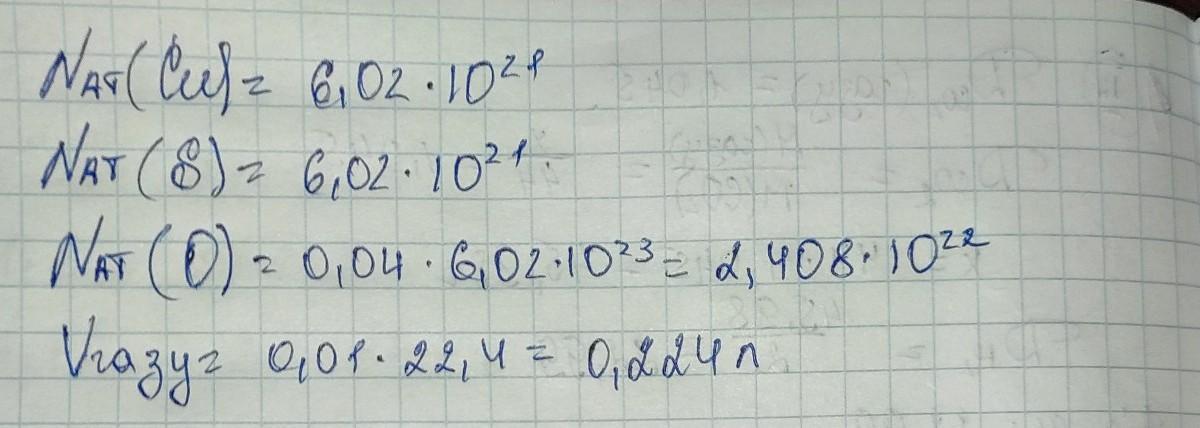 Nат(Cu) = 6,02 · 10²¹
Nат(S) = 6,02 · 10²¹
Nат(O) = 0,04 · 6,02 · 10²³ = 2,408 · 10²²
Vгазу = 0,01 · 22,4 = 0,224 л